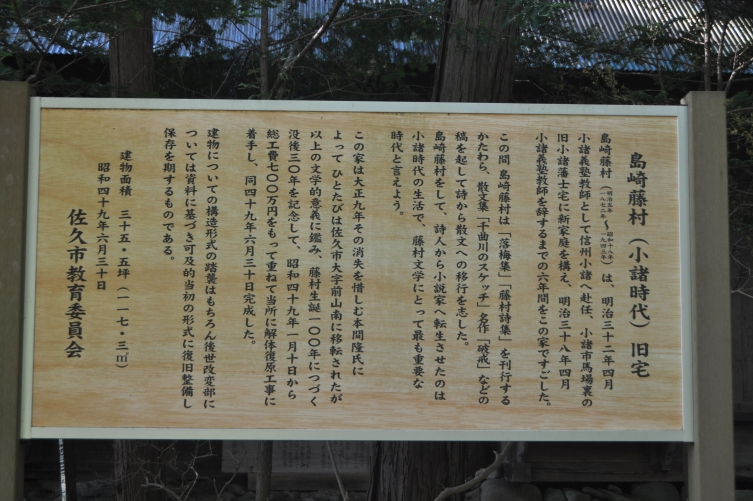 島崎藤村（小諸時代）旧宅
島崎藤村（明治五年一八七二年〜昭和十八年一九四三年）は、明治三十二年四月
小諸義塾教師として信州小諸へ赴任、小諸市馬場裏の
旧小諸藩士宅に新家庭を構え、明治三十八年四月
小諸義塾教師を辞するまでの六年間をこの家ですごした。
この間 島崎藤村は、「落梅集」「藤村詩集」を刊行する
かたわら、散文集「千曲川のスケッチ」名作「破戒」などの
稿を起して詩から散文への移行を志した。
島崎藤村をして、詩人から小説家へ転生させたのは
小諸時代の生活で、藤村文学にとって最も重要な
時代と言えよう。
この家は大正九年その消失を惜しむ本間隆氏に
よって ひとたびは佐久市大字前山南に移転されたが
以上の文学的意義に鑑み、藤村生誕一〇〇年につづく
没後三〇年を記念して、昭和四十九年一月十日から
総工費七〇〇万円をもって重ねて当所に解体復原工事に
着手し、同四十九年六月三十日完成した。
建物についての構造形式の踏襲はもちろん後世改変部に
ついては資料に基づき可及的当初の形式に復旧整備し
保存を期するものである。
建物面積 三十五・五坪（一一七・三㎡）
昭和四十九年六月三十日
佐久市教育委員会